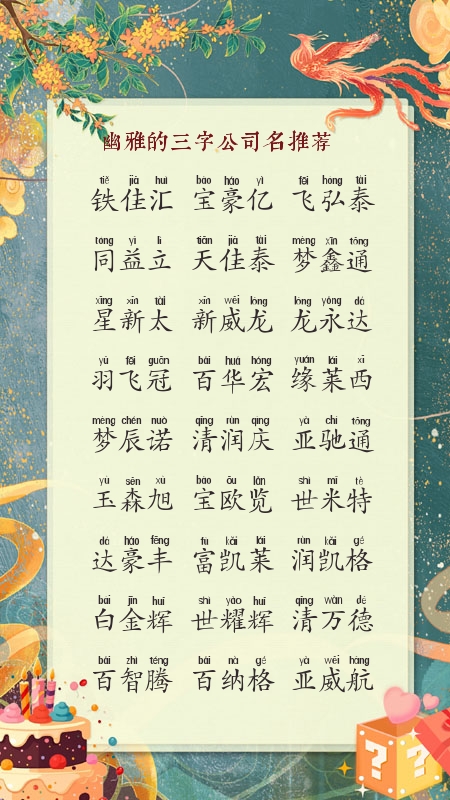 幽雅的三字公司名推荐
tiě jiā huì bǎo háo yì fēi hóng tài
铁佳汇 宝豪亿 飞弘泰
tóng yì lì tiān jiā tài mèng xīn tōng
同益立 天佳泰 梦鑫通
xīng xīn tài xīn wēi lóng lóng yǒng dá
星新太 新威龙 龙永达
yǔ fēi guān bǎi huá hóng yuán lái xī
羽飞冠 百华宏 缘莱西
mèng chén nuò qīng rùn qìng yà chí tōng
梦辰诺 清润庆 亚驰通
yù sēn xù bǎo ōu lǎn shì mǐ tè
玉森旭 宝欧览 世米特
dá háo fēng fù kǎi lái rùn kǎi gé
达豪丰 富凯莱 润凯格
bái jīn huī shì yào huī qīng wàn dé
白金辉 世耀辉 清万德
bǎi zhì téng bǎi nà gé yà wēi háng
百智腾 百纳格 亚威航
? ?